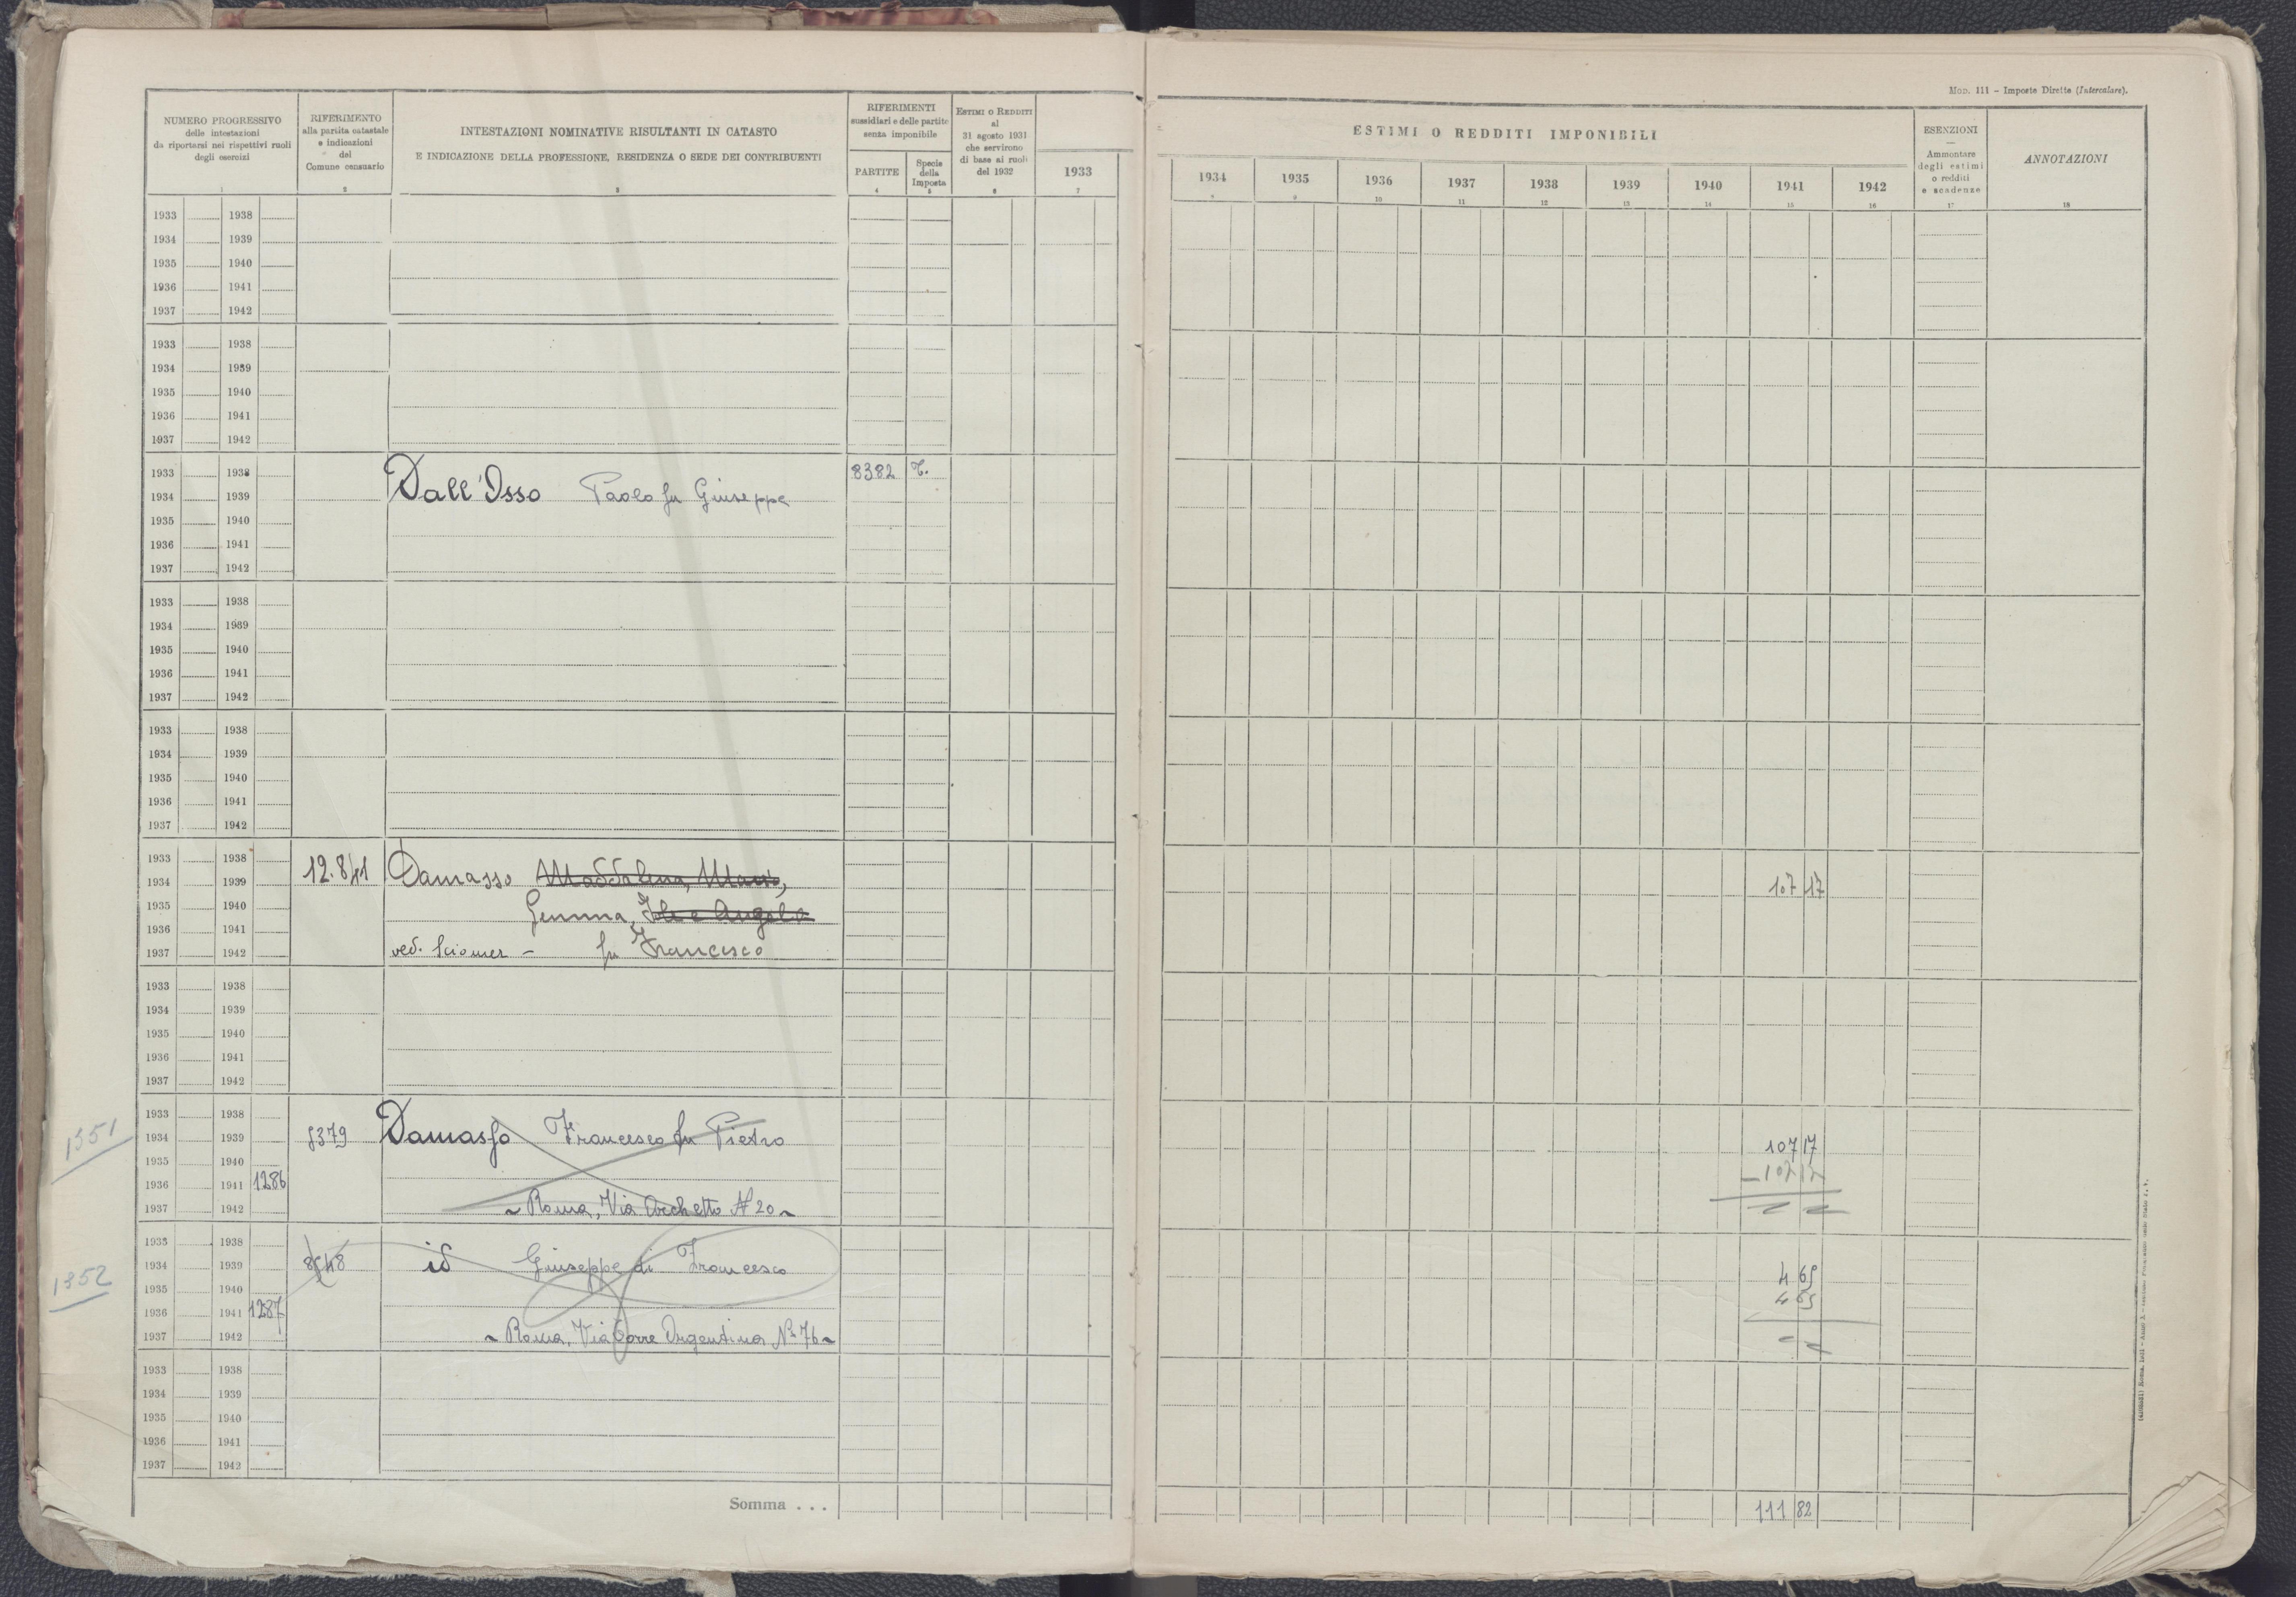 Mod. 111 – Imposte Dirette (Intercalare).
NUMERO PROGRESSIVO
delle intestazioni
da riportarsi nei rispettivi ruoli
degli esercizi
1
RIFERIMENTO
alla partita catastale
e indicazioni
del
Comune censuario
2
INTESTAZIONI NOMINATIVE RISULTANTI IN CATASTO
E INDICAZIONE DELLA PROFESSIONE, RESIDENZA O SEDE DEI CONTRIBUENTI
3
RIFERIMENTI
sussidiari e delle partite
senza imponibile
PARTITE
4
Specie
della
Imposta
5
ESTIMI O REDDITI
al
31 agosto 1931
che servirono
di base ai ruoli
del 1932
6
1933
7
ESTIMI O REDDITI IMPONIBILI
1934 1935 1936 1937 1938 1939 1940 1941 1942
9 10 11 12 13 14 15 16
ESENZIONI
—
Ammontare
degli estimi
o redditi
e scadenze
17
ANNOTAZIONI
18
1933 1938
1934 1939
1935 1940
1936 1941
1937 1942
1933 1938
1934 1939
1935 1940
1936 1941
1937 1942
1933 1938 8382 T.
1934 1939 Dall'Osso Paolo fu Giuseppe
1935 1940
1936 1941
1937 1942
1933 1938
1934 1939
1935 1940
1936 1941
1937 1942
1933 1938
1934 1939
1935 1940
1936 1941
1937 1942
1933 1938
1934 1939 12.841 Damasso Maddalena, Mario, 107 17
1935 1940 Gemma, Ile e Angela
1936 1941
1937 1942 ved. fu Francesco
1933 1938
1934 1939
1935 1940
1936 1941
1937 1942
1933 1938
1351 1934 1939 8379 Damasso Francesco fu Pietro 107 17
1935 1940
1936 1941 1286 – 107 17
1937 1942 ~ Roma, Via N 20 ~
1933 1938
1352 1934 1939 8548 id Giuseppe di Francesco 4 65
1935 1940 4 65
1936 1941 1287
1937 1942 ~ Roma, Via Torre Argentina N. 76 ~
1933 1938
1934 1939
1935 1940
1936 1941
1937 1942
Somma . . . 111 82